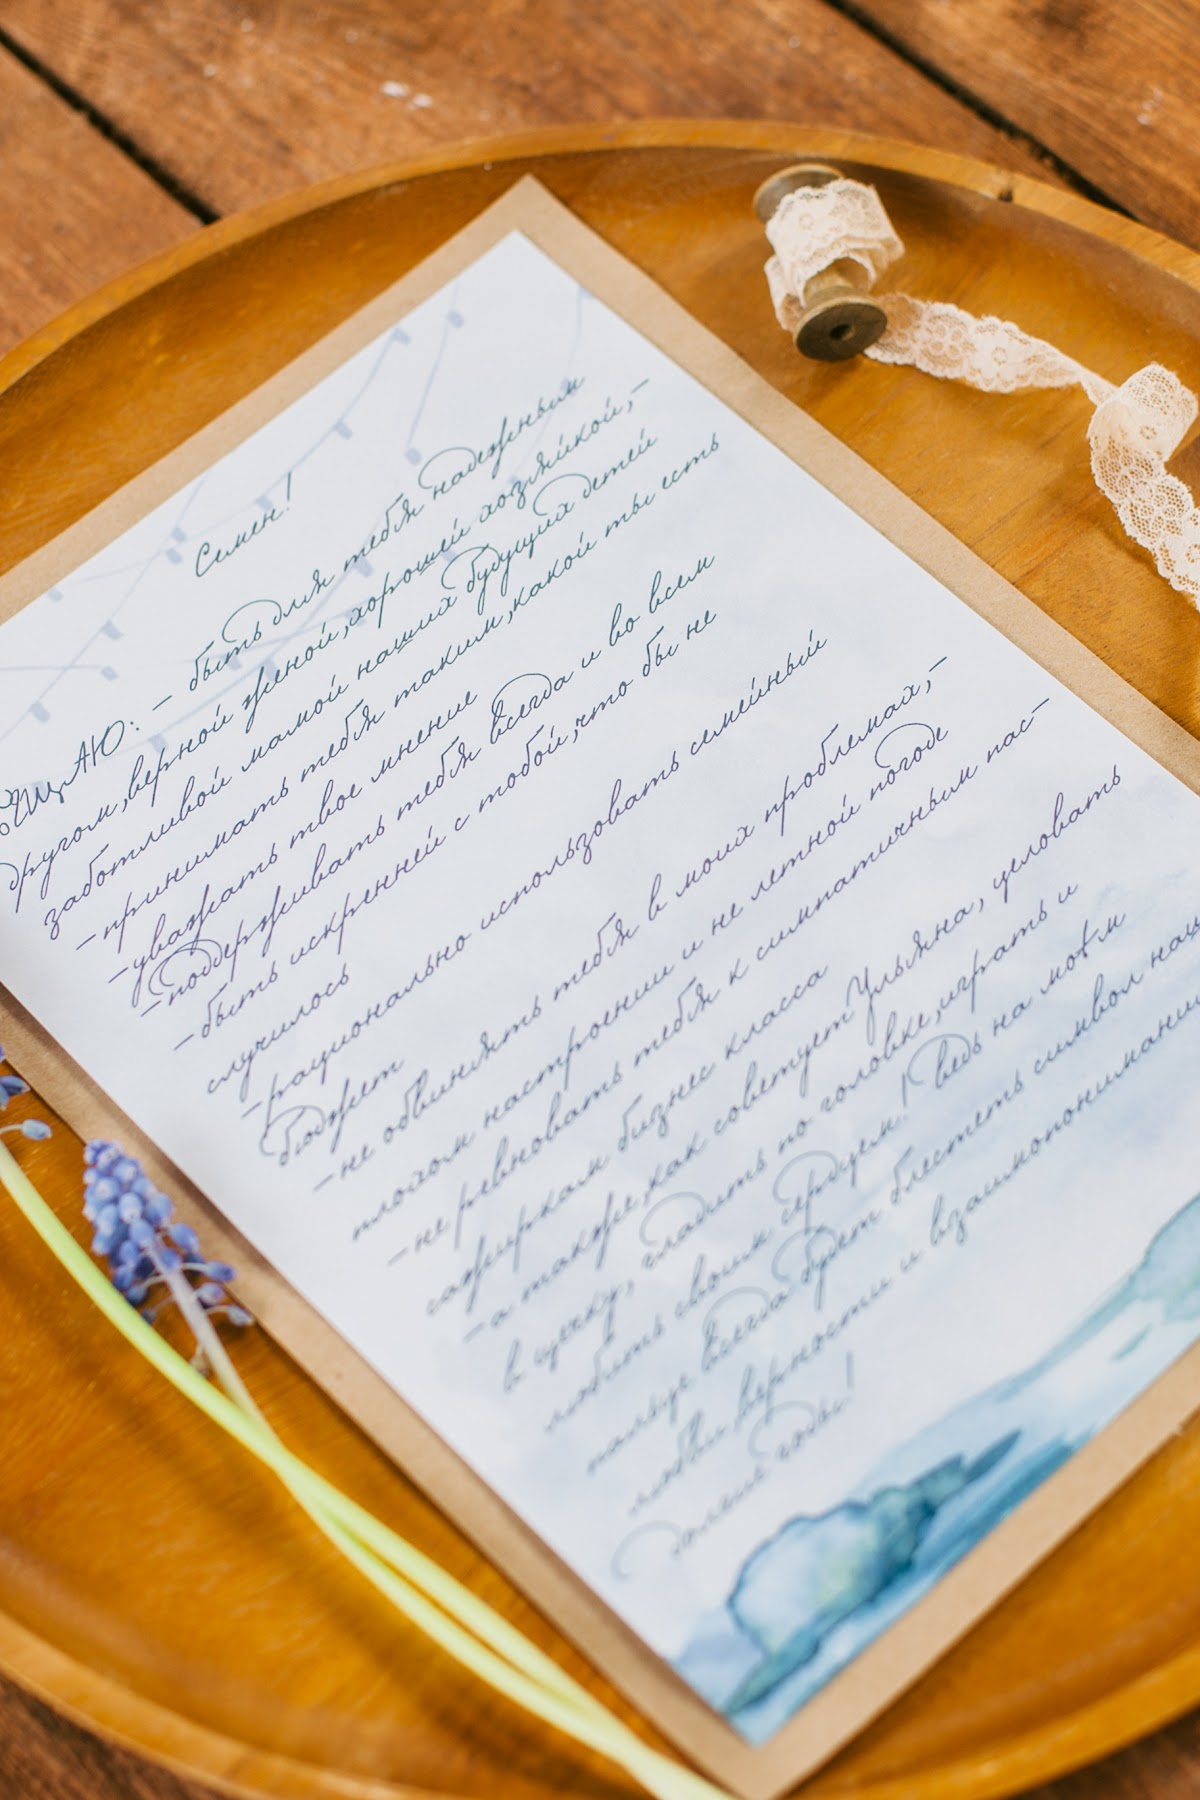 Семен!
ОБЕЩАЮ: - быть для тебя надежным
другом, верной женой, хорошей хозяйкой, -
заботливой мамой наших будущих детей
- принимать тебя таким, какой ты есть
- уважать твое мнение
- поддерживать тебя всегда и во всем
- быть искренней с тобой, что бы не
случилось
- рационально использовать семейный
бюджет
- не обвинять тебя в моих проблемах, -
плохом настроении и не летной погоде
- не ревновать тебя к симпатичным пас-
сажиркам бизнес класса
- а также, как советует Ульяна, целовать
в щечку, гладить по головке, играть и
любить своим сердцем! Ведь на моем
пальце всегда будет блестеть символ наш
любви, верности и взаимопонимани
долгие годы!